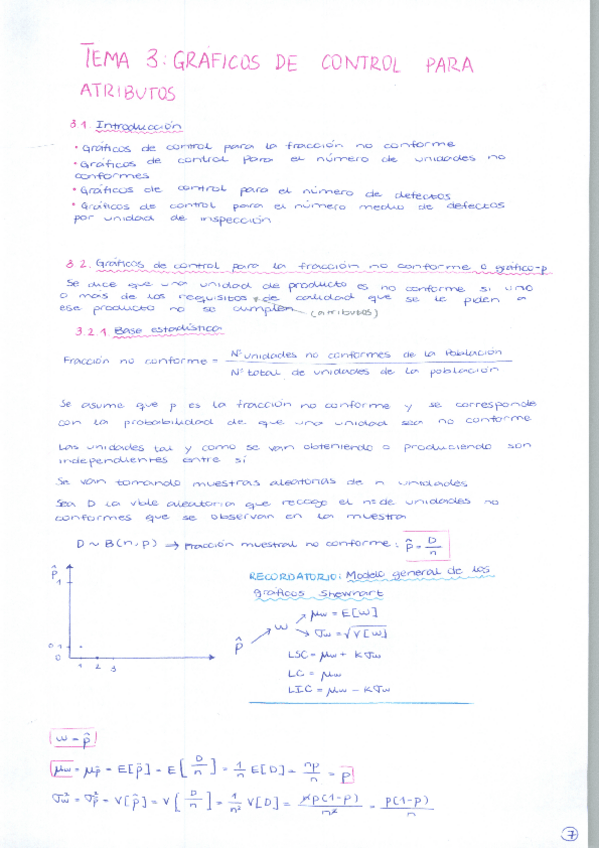 TEMA 3: GRÁFICOS DE CONTROL PARA
ATRIBUTOS
3.1. Introducción
• Gráficos de control para la fracción no conforme
• Gráficos de control Para el número de unidades no
conformes
• Gráficos de control para el número de defectos
• Gráficos de control para el número medio de defectos
por unidad de inspección
3.2. Gráficos de control para la fracción no conforme o gráfico-p
Se dice que una unidad de producto es no conforme si uno
o más de los requisitos de calidad que se le piden a
ese producto no se cumplen (atributos)
3.2.1. Base estadística
Fracción no conforme = Nº unidades no conformes de la Población / Nº total de unidades de la población
Se asume que p es la fracción no conforme y se corresponde
con la probabilidad de que una unidad sea no conforme
Las unidades tal y como se van obteniendo o produciendo son
independientes entre sí
Se van tomando muestras aleatorias de n unidades
Sea D la vble aleatoria que recoge el nº de unidades no
conformes que se observan en la muestra
D ~ B(n, p) → Fracción muestral no conforme: p̂ = D/n
p̂
1
0.1
0
1 2 3
RECORDATORIO: Modelo general de los
gráficos Shewhart
p̂ → w → μw = E[w]
→ σw = √V[w]
LSC = μw + kσw
LC = μw
LIC = μw - kσw
w = p̂
μw = μp̂ = E[p̂] = E[D/n] = 1/n E[D] = np/n = p
σ²w = σ²p̂ = V[p̂] = V(D/n) = 1/n² V[D] = np(1-p)/n² = p(1-p)/n
7